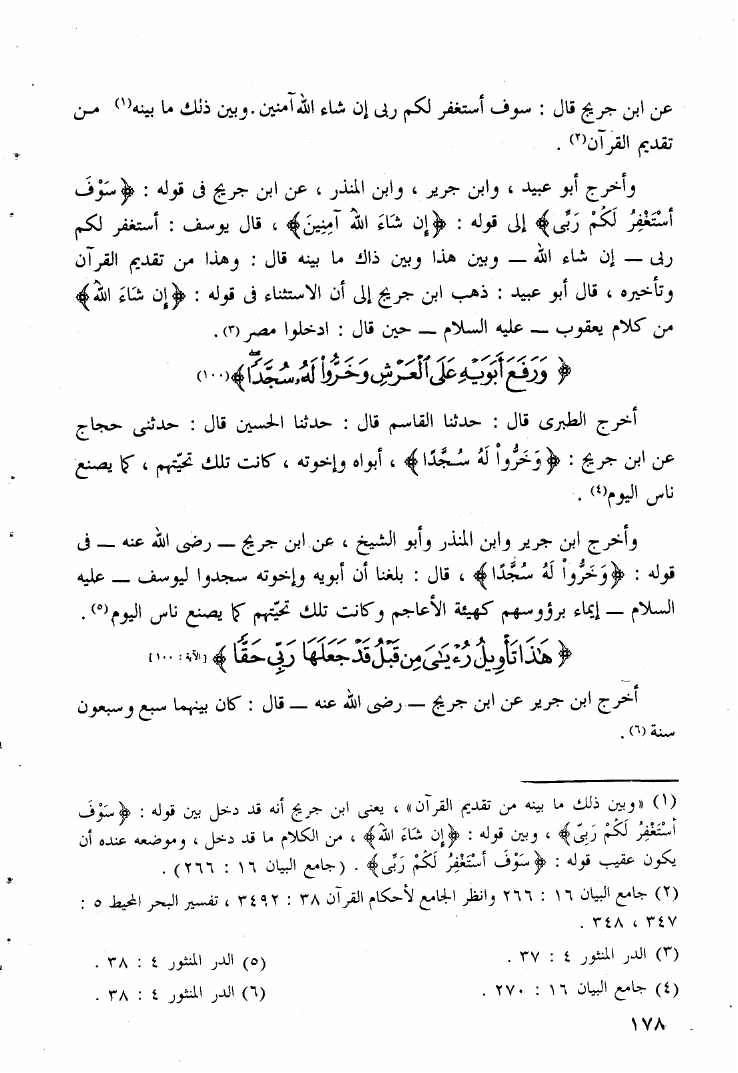 عن ابن جريج قال : سوف أستغفر لكم ربى إن شاء الله آمنين . وبين ذلك ما بينه(١) من
تقديم القرآن(٢) .
وأخرج أبو عبيد ، وابن جرير ، وابن المنذر ، عن ابن جريج فى قوله : ﴿سَوْفَ
أَسْتَغْفِرُ لَكُمْ رَبِّى﴾ إلى قوله : ﴿إِن شَاءَ اللهُ آمِنِينَ﴾ ، قال يوسف : أستغفر لكم
ربى — إن شاء الله — وبين هذا وبين ذاك ما بينه قال : وهذا من تقديم القرآن
وتأخيره ، قال أبو عبيد : ذهب ابن جريج إلى أن الاستثناء فى قوله : ﴿إِن شَاءَ اللهُ﴾
من كلام يعقوب — عليه السلام — حين قال : ادخلوا مصر (٣).
﴿ وَرَفَعَ أَبَوَيْهِ عَلَى ٱلْعَرْشِ وَخَرُّوا۟ لَهُۥ سُجَّدًا﴾(١٠٠)
أخرج الطبرى قال : حدثنا القاسم قال : حدثنا الحسين قال : حدثنى حجاج
عن ابن جريج : ﴿وَخَرُّوا لَهُ سُجَّدًا﴾ ، أبواه وإخوته ، كانت تلك تحيّتهم ، كما يصنع
ناس اليوم(٤) .
وأخرج ابن جرير وابن المنذر وأبو الشيخ ، عن ابن جريج — رضى الله عنه — فى
قوله : ﴿وَخَرُّواْ لَهُ سُجَّدًا﴾ ، قال : بلغنا أن أبويه وإخوته سجدوا ليوسف — عليه
السلام — إيماء برؤوسهم كهيئة الأعاجم وكانت تلك تحيّتهم كما يصنع ناس اليوم(٥) .
﴿ هَٰذَا تَأْوِيلُ رُءْيَٰىَ مِن قَبْلُ قَدْ جَعَلَهَا رَبِّى حَقًّا ﴾ [الآية : ١٠٠]
أخرج ابن جرير عن ابن جريج — رضى الله عنه — قال : كان بينهما سبع وسبعون
سنة (٦) .
(١) «وبين ذلك ما بينه من تقديم القرآن» ، يعنى ابن جريج أنه قد دخل بين قوله : ﴿سَوْفَ
أَسْتَغْفِرُ لَكُمْ رَبِّىَ﴾ ، وبين قوله : ﴿إِن شَاءَ اللهُ﴾ ، من الكلام ما قد دخل ، وموضعه عنده أن
يكون عقيب قوله : ﴿سَوْفَ أَسْتَغْفِرُ لَكُمْ رَبِّى﴾ . (جامع البيان ١٦ : ٢٦٦) .
(٢) جامع البيان ١٦ : ٢٦٦ وانظر الجامع لأحكام القرآن ٣٨ : ٣٤٩٢ ، تفسير البحر المحيط ٥ :
٣٤٧ ، ٣٤٨ .
(٣) الدر المنثور ٤ : ٣٧ .
(٤) جامع البيان ١٦ : ٢٧٠ .
(٥) الدر المنثور ٤ : ٣٨ .
(٦) الدر المنثور ٤ : ٣٨ .
١٧٨